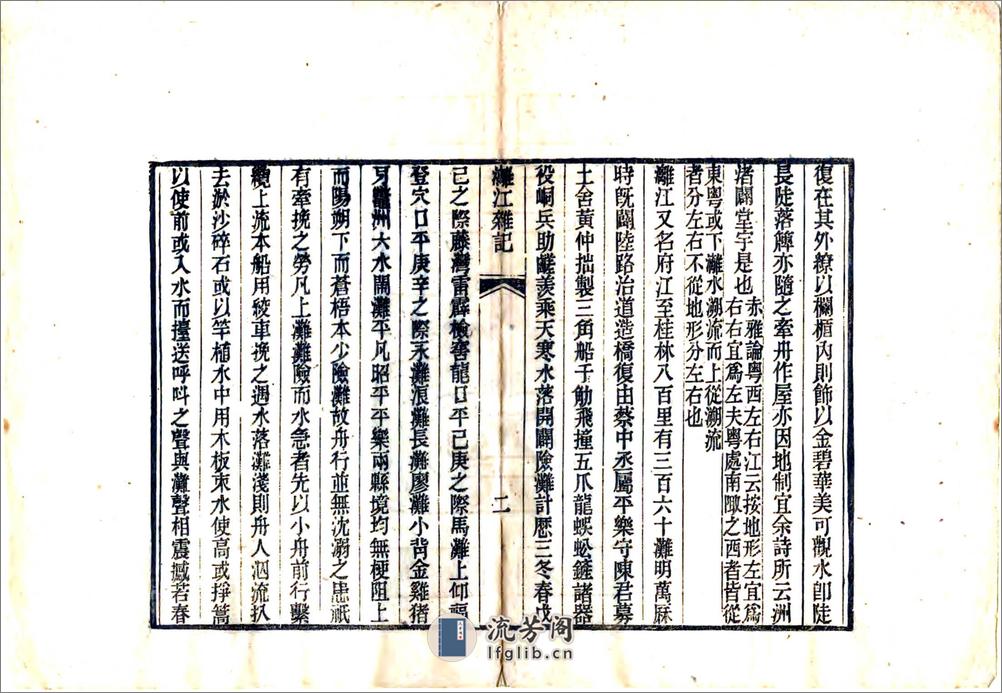 復在其外繚以欄楯內則飾以金碧華美可觀水卽陡
長陡落簰亦隨之牽舟作屋亦因地制宜余詩所云洲
渚闢堂宇是也赤雅論粵西左右江云按地形左宜爲
右右宜爲左夫粵處南陬之西者皆從
東粵或下灕水溯流而上從溯流
者分左右不從地形分左右也
灕江又名府江至桂林八百里有三百六十灘明萬厤
時旣闢陸路治道造橋復由蔡中丞屬平樂守陳君募
土舍黃仲拙製三角船千觔飛撞五爪龍蜈蚣鏟諸器
役峒兵助鹺羨乘天寒水落開闢險灘計厯三冬春戊
灕江雜記
二
己之際藤灣雷霹檢窖龍口平己庚之際馬灘上仰
登穴口平庚辛之際永灘浪灘長灘廖灘小背金雞猪
洲大水閘灘平凡昭平平樂兩縣境均無梗阻上
而陽朔下而蒼梧本少險灘故舟行並無沈溺之患祇
有牽挽之勞凡上灘灘險而水急者先以小舟前行繫
纜上流本船用絞車挽之遇水落灘淺則舟人泅流扒
去淤沙碎石或以竿植水中用木板束水使高或掙篙
以使前或入水而擡送呼呌之聲與灘聲相震撼若春
流芳阁
lfglib.cn